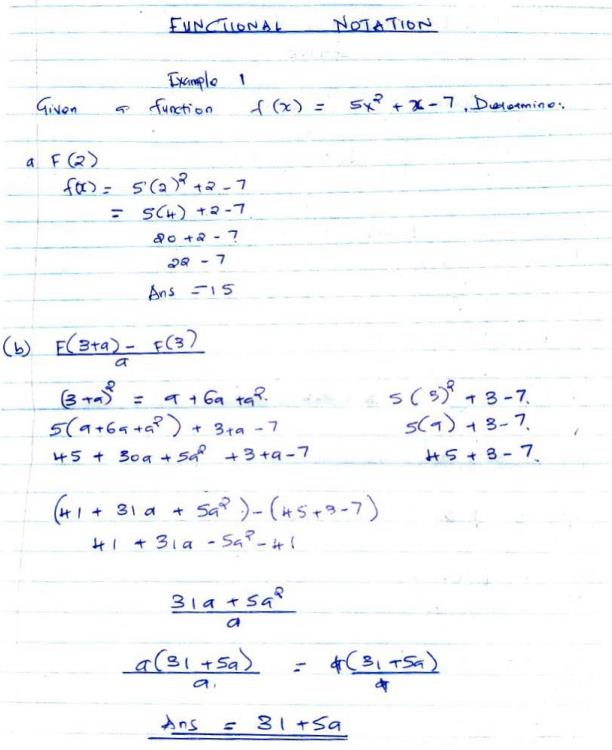 FUNCTIONAL NOTATION
Example 1
Given a function f(x) = 5x² + x - 7, Determine:.
a F(2)
f(x) = 5(2)² + 2 - 7
= 5(4) + 2 - 7
20 + 2 - 7
22 - 7
Ans = 15
(b) F(3+a) - F(3)
a
(3+a)² = 9 + 6a + a². 5(3)² + 3 - 7.
5(9+6a+a²) + 3+a - 7 5(9) + 3 - 7.
45 + 30a + 5a² + 3 + a - 7 45 + 3 - 7.
(41 + 31a + 5a²) - (45 + 3 - 7)
41 + 31a - 5a² - 41
31a + 5a²
a
a(31 + 5a) = a(31 + 5a)
a. a
Ans = 31 + 5a